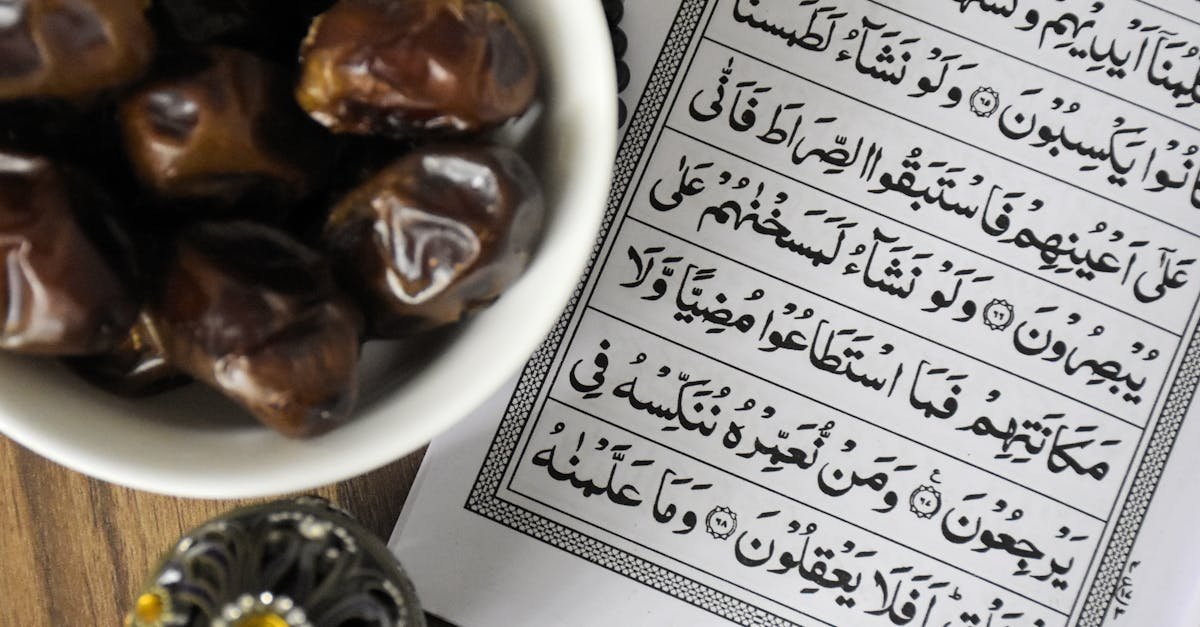 اَيْدِيْهِمْ
يَكْسِبُوْنَ ٦٥ وَلَوْ نَشَآءُ لَطَمَسْنَا
عَلٰٓى اَعْيُنِهِمْ فَاسْتَبَقُوا الصِّرَاطَ فَاَنّٰى
يُبْصِرُوْنَ ٦٦ وَلَوْ نَشَآءُ لَمَسَخْنٰهُمْ عَلٰى
مَكَانَتِهِمْ فَمَا اسْتَطَاعُوْا مُضِيًّا وَّلَا
يَرْجِعُوْنَ ٦٧ وَمَنْ نُّعَمِّرْهُ نُنَكِّسْهُ فِى
اَفَلَا يَعْقِلُوْنَ ٦٨ وَمَا عَلَّمْنٰهُ